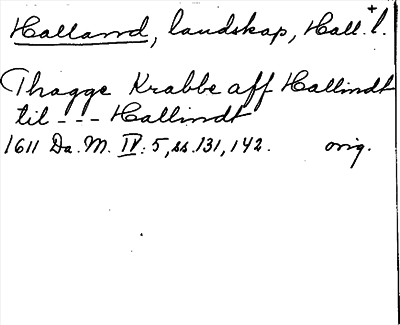 Halland, landskap, Hall. l.+
Thagge Krabbe aff Hallindt
til - - - Hallindt
1611 Da. M. IV: 5, ss. 131, 142. orig.